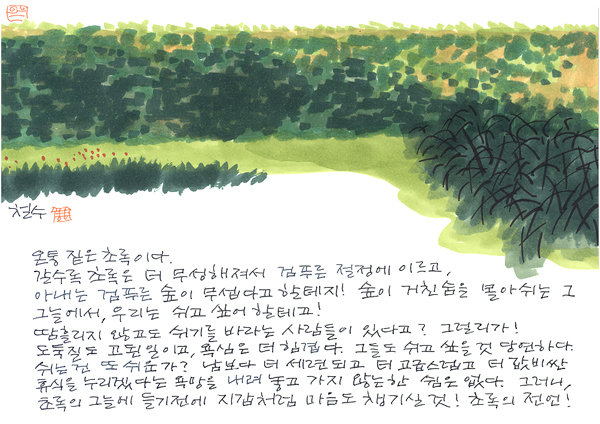 철수
온통 짙은 초록이다.
갈수록 초록은 더 무성해져서 검푸른 절정에 이르고,
아내는 검푸른 숲이 무섭다고 할테지! 숲이 거친 숨을 몰아쉬는 그
그늘에서, 우리는 쉬고 싶어 할테고!
땀흘리지 않고도 쉬기를 바라는 사람들이 있다고? 그럴리가!
도둑질도 고된일이고, 욕심은 더 힘겹다. 그들도 쉬고 싶을것 당연하다.
쉬는건 또 쉬운가? 남보다 더 세련되고 더 고급스럽고 더 값비싼
휴식을 누리겠다는 욕망을 내려 놓고 가지 않는한 쉼은 없다. 그러니,
초록의 그늘에 들기전에 지갑처럼 마음도 챙기실 것! 초록의 전언!